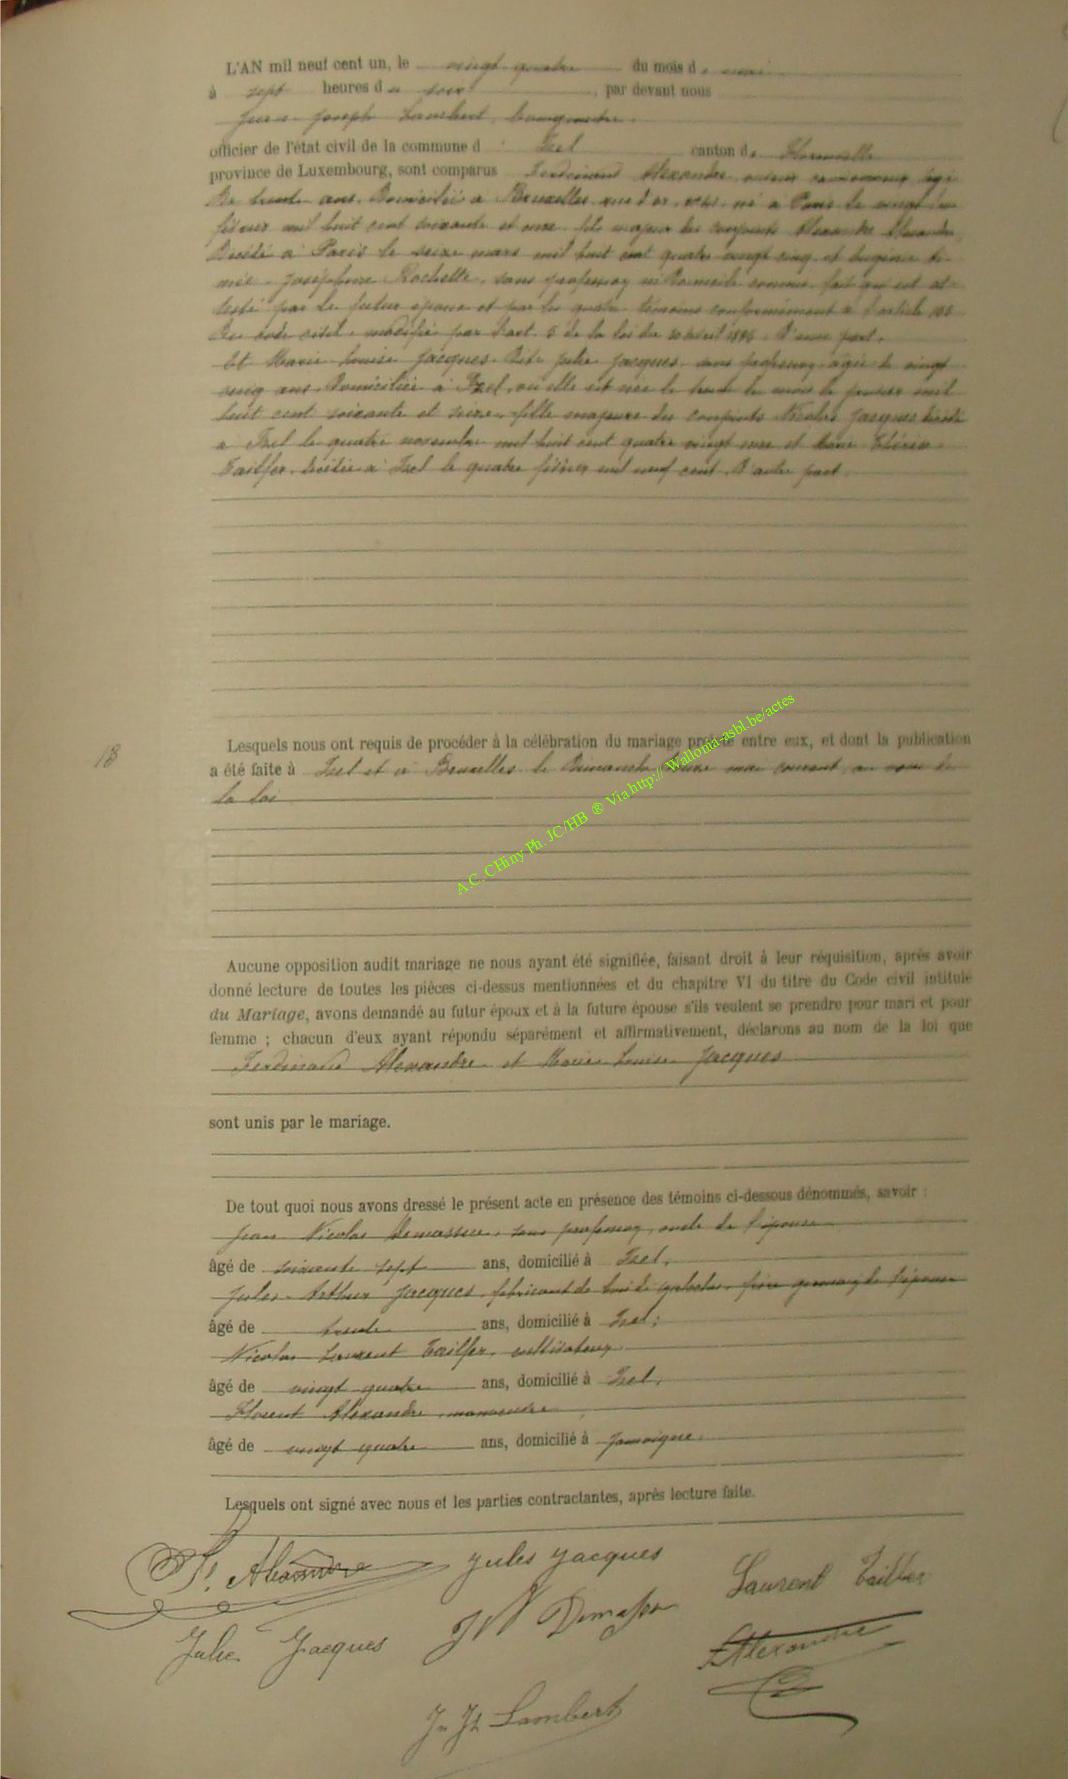 L'AN mil neuf cent un, le vingt quatre du mois de mai
à sept heures du soir, par devant nous
Jean Joseph Lambert, bourgmestre,
officier de l'état civil de la commune d'Izel canton de Florenville
province de Luxembourg, sont comparus Ferdinand Alexandre âgé
de trente ans, domicilié à Bruxelles, rue d'or, né à Paris le vingt
février mil huit cent soixante et onze, fils majeur des conjoints Alexandre Alexandre,
décédé à Paris le seize mars mil huit cent quatre vingt cinq et Eugénie
Joséphine Rochette, sans profession ni domicile connus, fait qui est at-
testé par le futur époux et par les quatre témoins conformément à l'article 155
du code civil, modifié par l'art. 5 de la loi du avril 1896. D'une part.
Et Marie Louise Jacques dite Julie Jacques, sans profession, âgée de vingt
cinq ans, domiciliée à Izel, où elle est née le trente du mois de janvier mil
huit cent soixante et seize, fille majeure des conjoints Nicolas Jacques décédé
à Izel le quatre novembre mil huit cent quatre vingt onze et Marie Thérèse
Tailfer, décédée à Izel le quatre février mil neuf cent. D'autre part.
18
Lesquels nous ont requis de procéder à la célébration du mariage projeté entre eux, et dont la publication
a été faite à Izel et à Bruxelles le Dimanche mai courant, au nom de
la loi
A.C. CHiny Ph. JC/HB ® Via http:// Wallonia-asbl.be/actes
Aucune opposition audit mariage ne nous ayant été signifiée, faisant droit à leur réquisition, après avoir
donné lecture de toutes les pièces ci-dessus mentionnées et du chapitre VI du titre du Code civil intitulé
du Mariage, avons demandé au futur époux et à la future épouse s'ils veulent se prendre pour mari et pour
femme ; chacun d'eux ayant répondu séparément et affirmativement, déclarons au nom de la loi que
Ferdinand Alexandre et Marie Louise Jacques
sont unis par le mariage.
De tout quoi nous avons dressé le présent acte en présence des témoins ci-dessous dénommés, savoir :
Jean Nicolas Demasson, sans profession, oncle de l'épouse
âgé de soixante sept ans, domicilié à Izel,
Jules Arthur Jacques, fabricant de frère germain de l'épouse
âgé de trente ans, domicilié à Izel;
Nicolas Laurent Tailfer, cultivateur
âgé de vingt quatre ans, domicilié à Izel,
Florent Alexandre, manoeuvre
âgé de vingt quatre ans, domicilié à Jamoigne.
Lesquels ont signé avec nous et les parties contractantes, après lecture faite.
F. Alexandre Jules Jacques Laurent Tailfer
Julie Jacques JN Demasson F Alexandre
Jn Jh Lambert